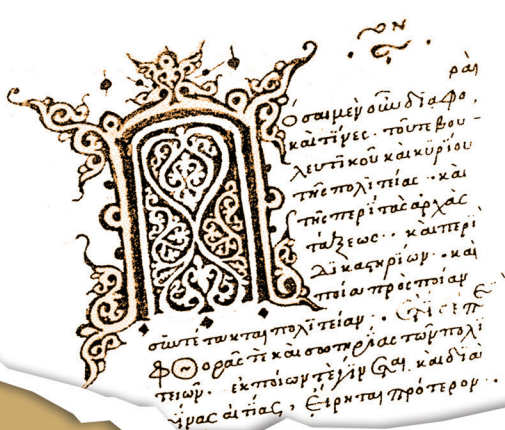 ραὶ
Πόσαι μὲν οὖν διαφο
καὶ τίνες· τοῦ τε βου-
λευτικοῦ καὶ κυρίου
τῆς πολιτείας· καὶ
τῆς περὶ τὰς ἀρχὰς
τάξεως· καὶ περὶ
δικαστηρίων· καὶ
ποία πρὸς ποίαν
συντέτακται πολιτείαν·
φθορᾶς τε καὶ σωτηρίας τῶν πολι
τειῶν· ἐκ ποίων τε γίνεται καὶ διὰ
τίνας αἰτίας, εἴρηται πρότερον·